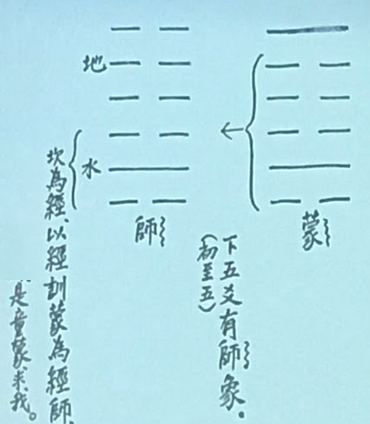 蒙
下五爻有師象。
（初至五）
地
水
師
坎為經、以經訓蒙為經師、
是童蒙求我。